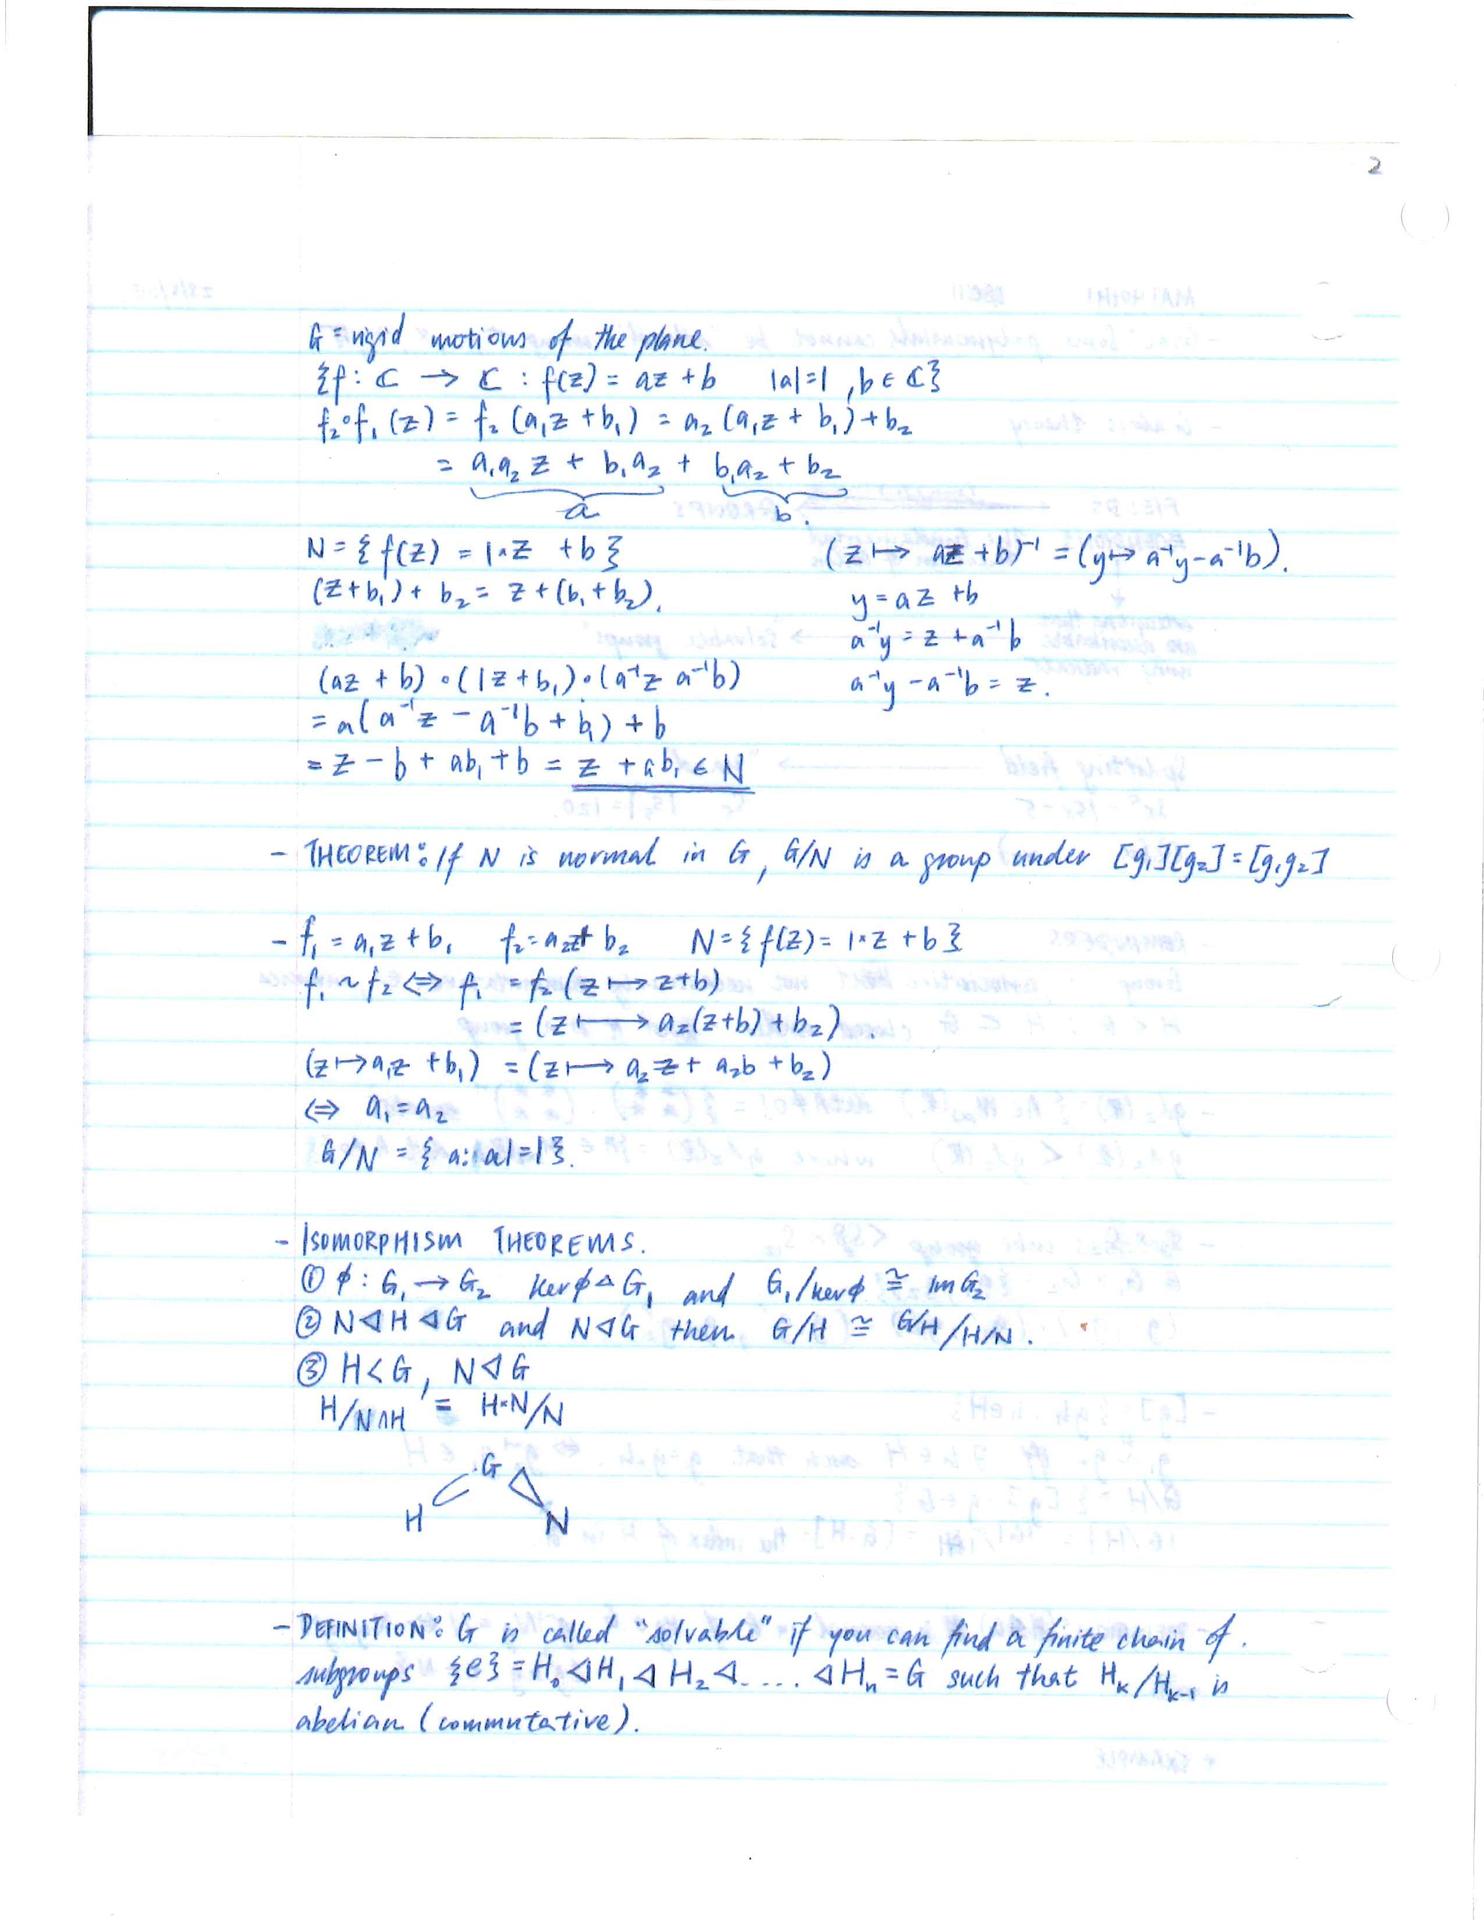 2
G = rigid motions of the plane.
{f : ℂ → ℂ : f(z) = az + b |a|=1, b ∈ ℂ}
f₂∘f₁(z) = f₂(a₁z + b₁) = a₂(a₁z + b₁) + b₂
= a₁a₂ z + b₁a₂ + b₁a₂ + b₂
a b.
N = { f(z) = 1×z + b } (z ↦ az + b)⁻¹ = (y ↦ a⁻¹y - a⁻¹b).
(z + b₁) + b₂ = z + (b₁ + b₂). y = az + b
a⁻¹y = z + a⁻¹b
(az + b) ∘ (1z + b₁) ∘ (a⁻¹z a⁻¹b) a⁻¹y - a⁻¹b = z.
= a(a⁻¹z - a⁻¹b + b₁) + b
= z - b + ab₁ + b = z + ab₁ ∈ N
- THEOREM: If N is normal in G, G/N is a group under [g₁][g₂] = [g₁g₂]
- f₁ = a₁z + b₁ f₂ = a₂z + b₂ N = { f(z) = 1×z + b }
f₁ ~ f₂ ⇔ f₁ = f₂(z ↦ z+b)
= (z ↦ a₂(z+b) + b₂).
(z ↦ a₁z + b₁) = (z ↦ a₂z + a₂b + b₂)
⇔ a₁ = a₂
G/N = { a: |a|=1 }.
- ISOMORPHISM THEOREMS.
① ϕ : G₁ → G₂ kerϕ ⊲ G₁ and G₁/kerϕ ≅ im G₂
② N ⊲ H ⊲ G and N ⊲ G then G/H ≅ G/H / H/N.
③ H < G, N ⊲ G
H/N∩H = H×N/N
G
H N
- DEFINITION: G is called "solvable" if you can find a finite chain of.
subgroups {e} = H₀ ⊲ H₁ ⊲ H₂ ⊲ .... ⊲ Hₙ = G such that Hₖ/Hₖ₋₁ is
abelian (commutative).